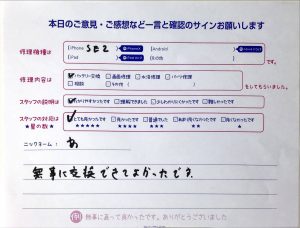 本日のご意見・ご感想など一言と確認のサインお願いします
修理機種は
iPhone SE2
Android
iPad
その他
です。
修理内容は
バッテリー交換 画面修理 水没修理 パーツ修理
相談 その他
をしてもらいました。
スタッフの説明は
わかりやすかったです 理解できました 少しわかりにくかったです 難しかったです
スタッフの対応は
★星の数★
とても良かったです 良かったです 普通でした あまり良くなかったです 良くなかったです
★★★★★ ★★★★ ★★★ ★★ ★
ニックネーム: あ
無事に交換できてよかったです。
無事に直って良かったです。ありがとうございました